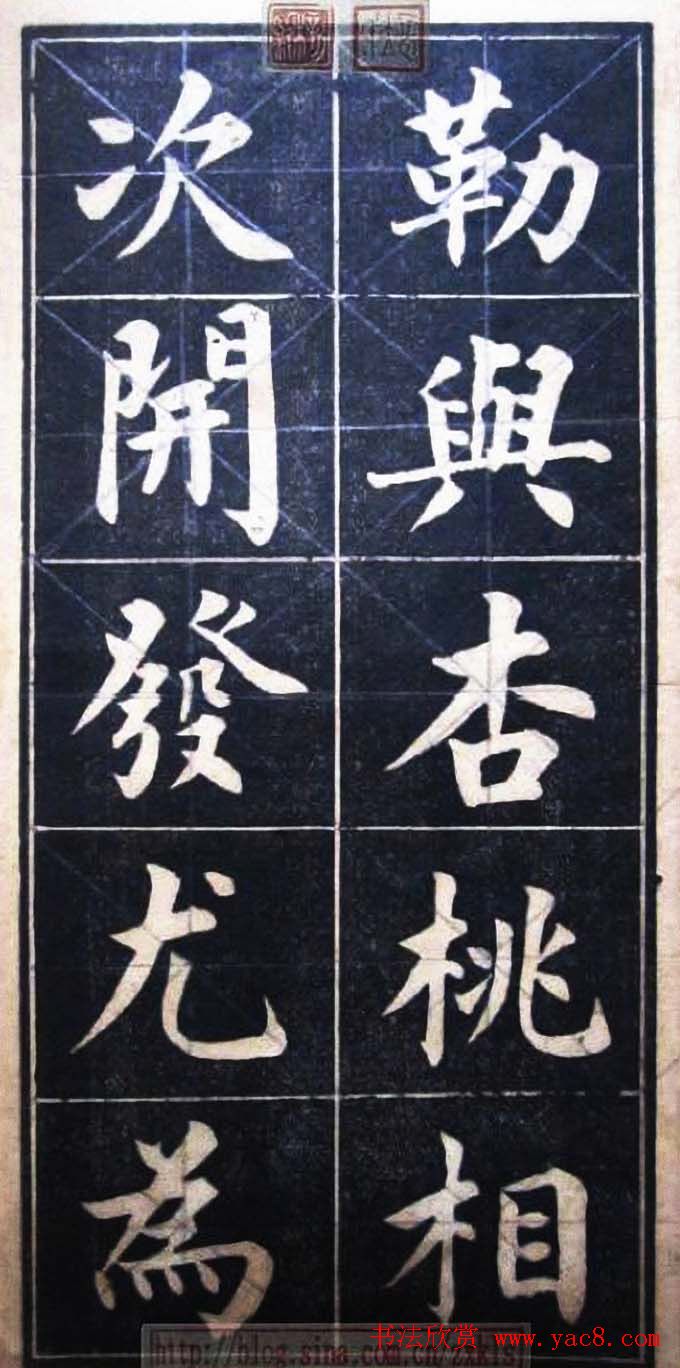 勒與杏桃相
次開發尤為
http://blog.sina.com.cn/
书法欣赏 www.yac8.com